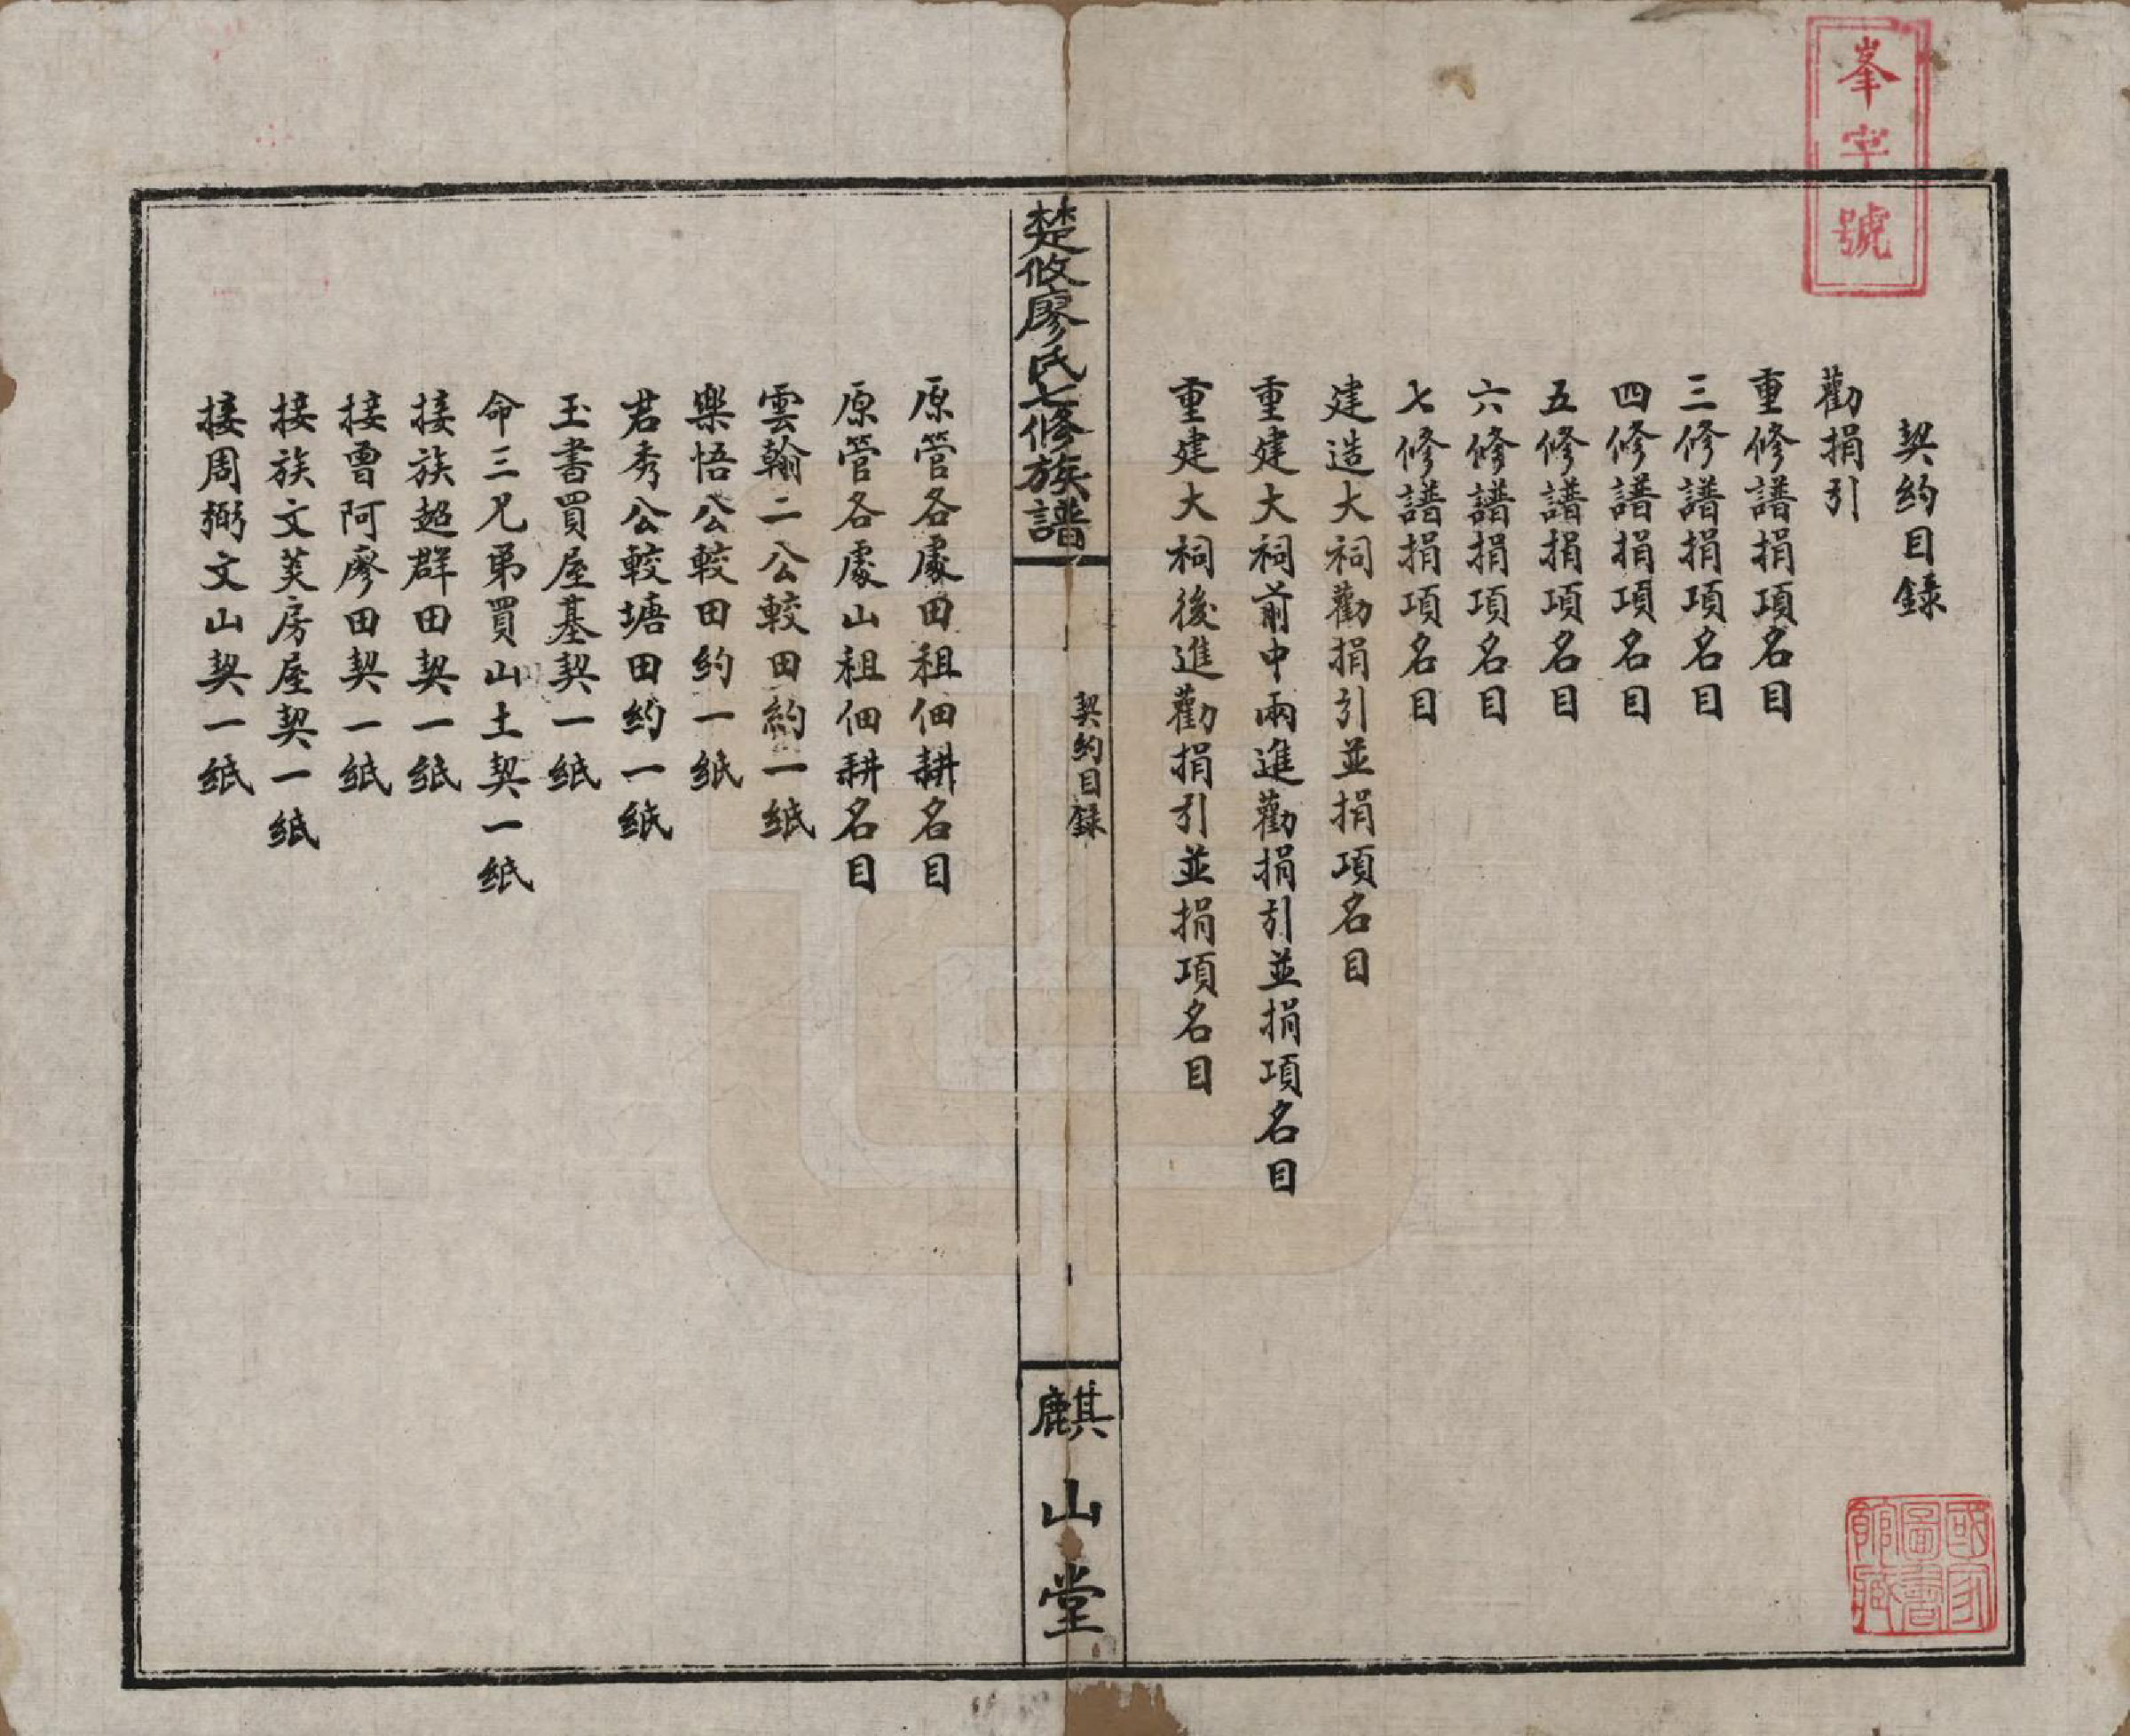 峯字號
契約目錄
勸捐引
重修譜捐項名目
三修譜捐項名目
四修譜捐項名目
五修譜捐項名目
六修譜捐項名目
七修譜捐項名目
建造大祠勸捐引並捐項名目
重建大祠前中兩進勸捐引並捐項名目
重建大祠後進勸捐引並捐項名目
楚攸廖氏七修族譜
契約目錄
一
麒山堂
原管各處田租佃耕名目
原管各處山租佃耕名目
雲翰二公較田約一紙
樂悟公較田約一紙
君秀公較塘田約一紙
玉書買屋基契一紙
命三兄弟買山土契一紙
接族超群田契一紙
接曹阿廖田契一紙
接族文芙房屋契一紙
接周弼文山契一紙
國家圖書館藏